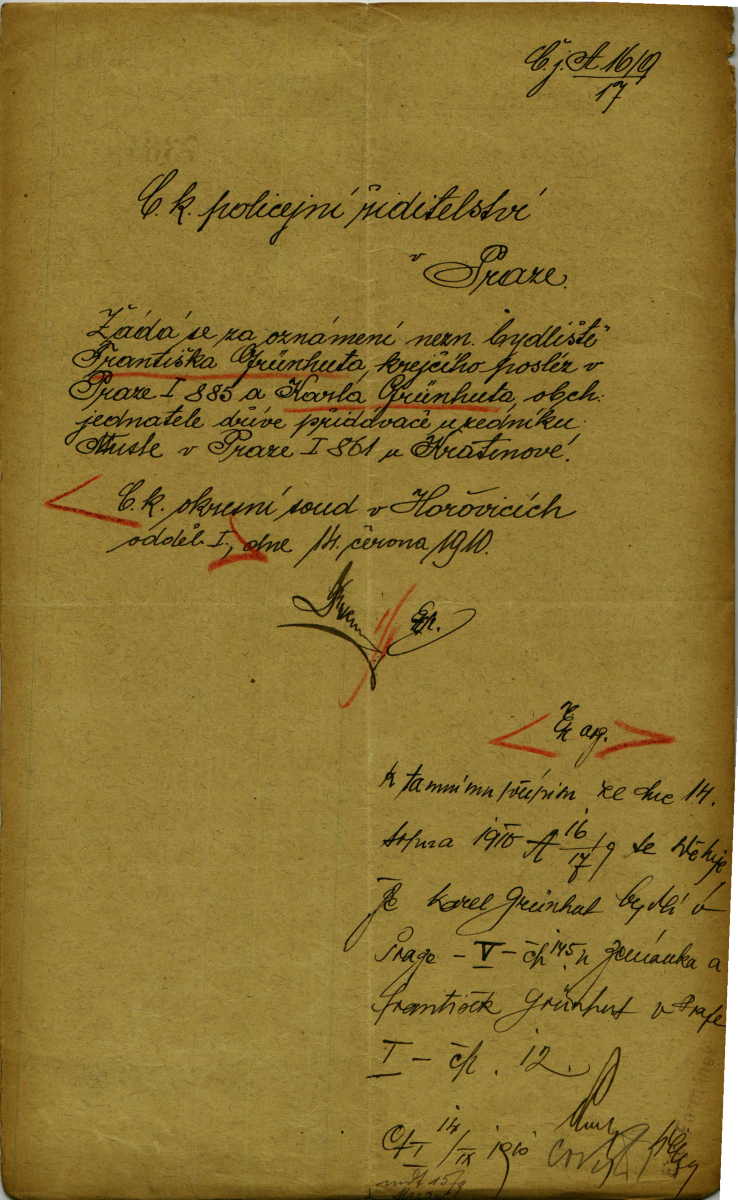 Č. j. A 16/9
17
C. k. policejní řiditelství
v Praze.
Žádá se za oznámení nezn. bydliště
Františka Grünhuta, krejčího posléz v
Praze I 885 a Karla Grünhuta, obch.
jednatele dříve přidávače u zedníku
v Praze I 861 u Kratinové.
C. k. okresní soud v Hořovicích
odděl. I, dne 14. června 1910.
k tamnímu přípisu ze dne 14.
1910 A 16/9 se sděluje
17
že Karel Grünhut bydlí v
Praze – V – čp 145 u Zemánka a
František Grünhut v Praze
I – čp. 12.
14/IX 1910